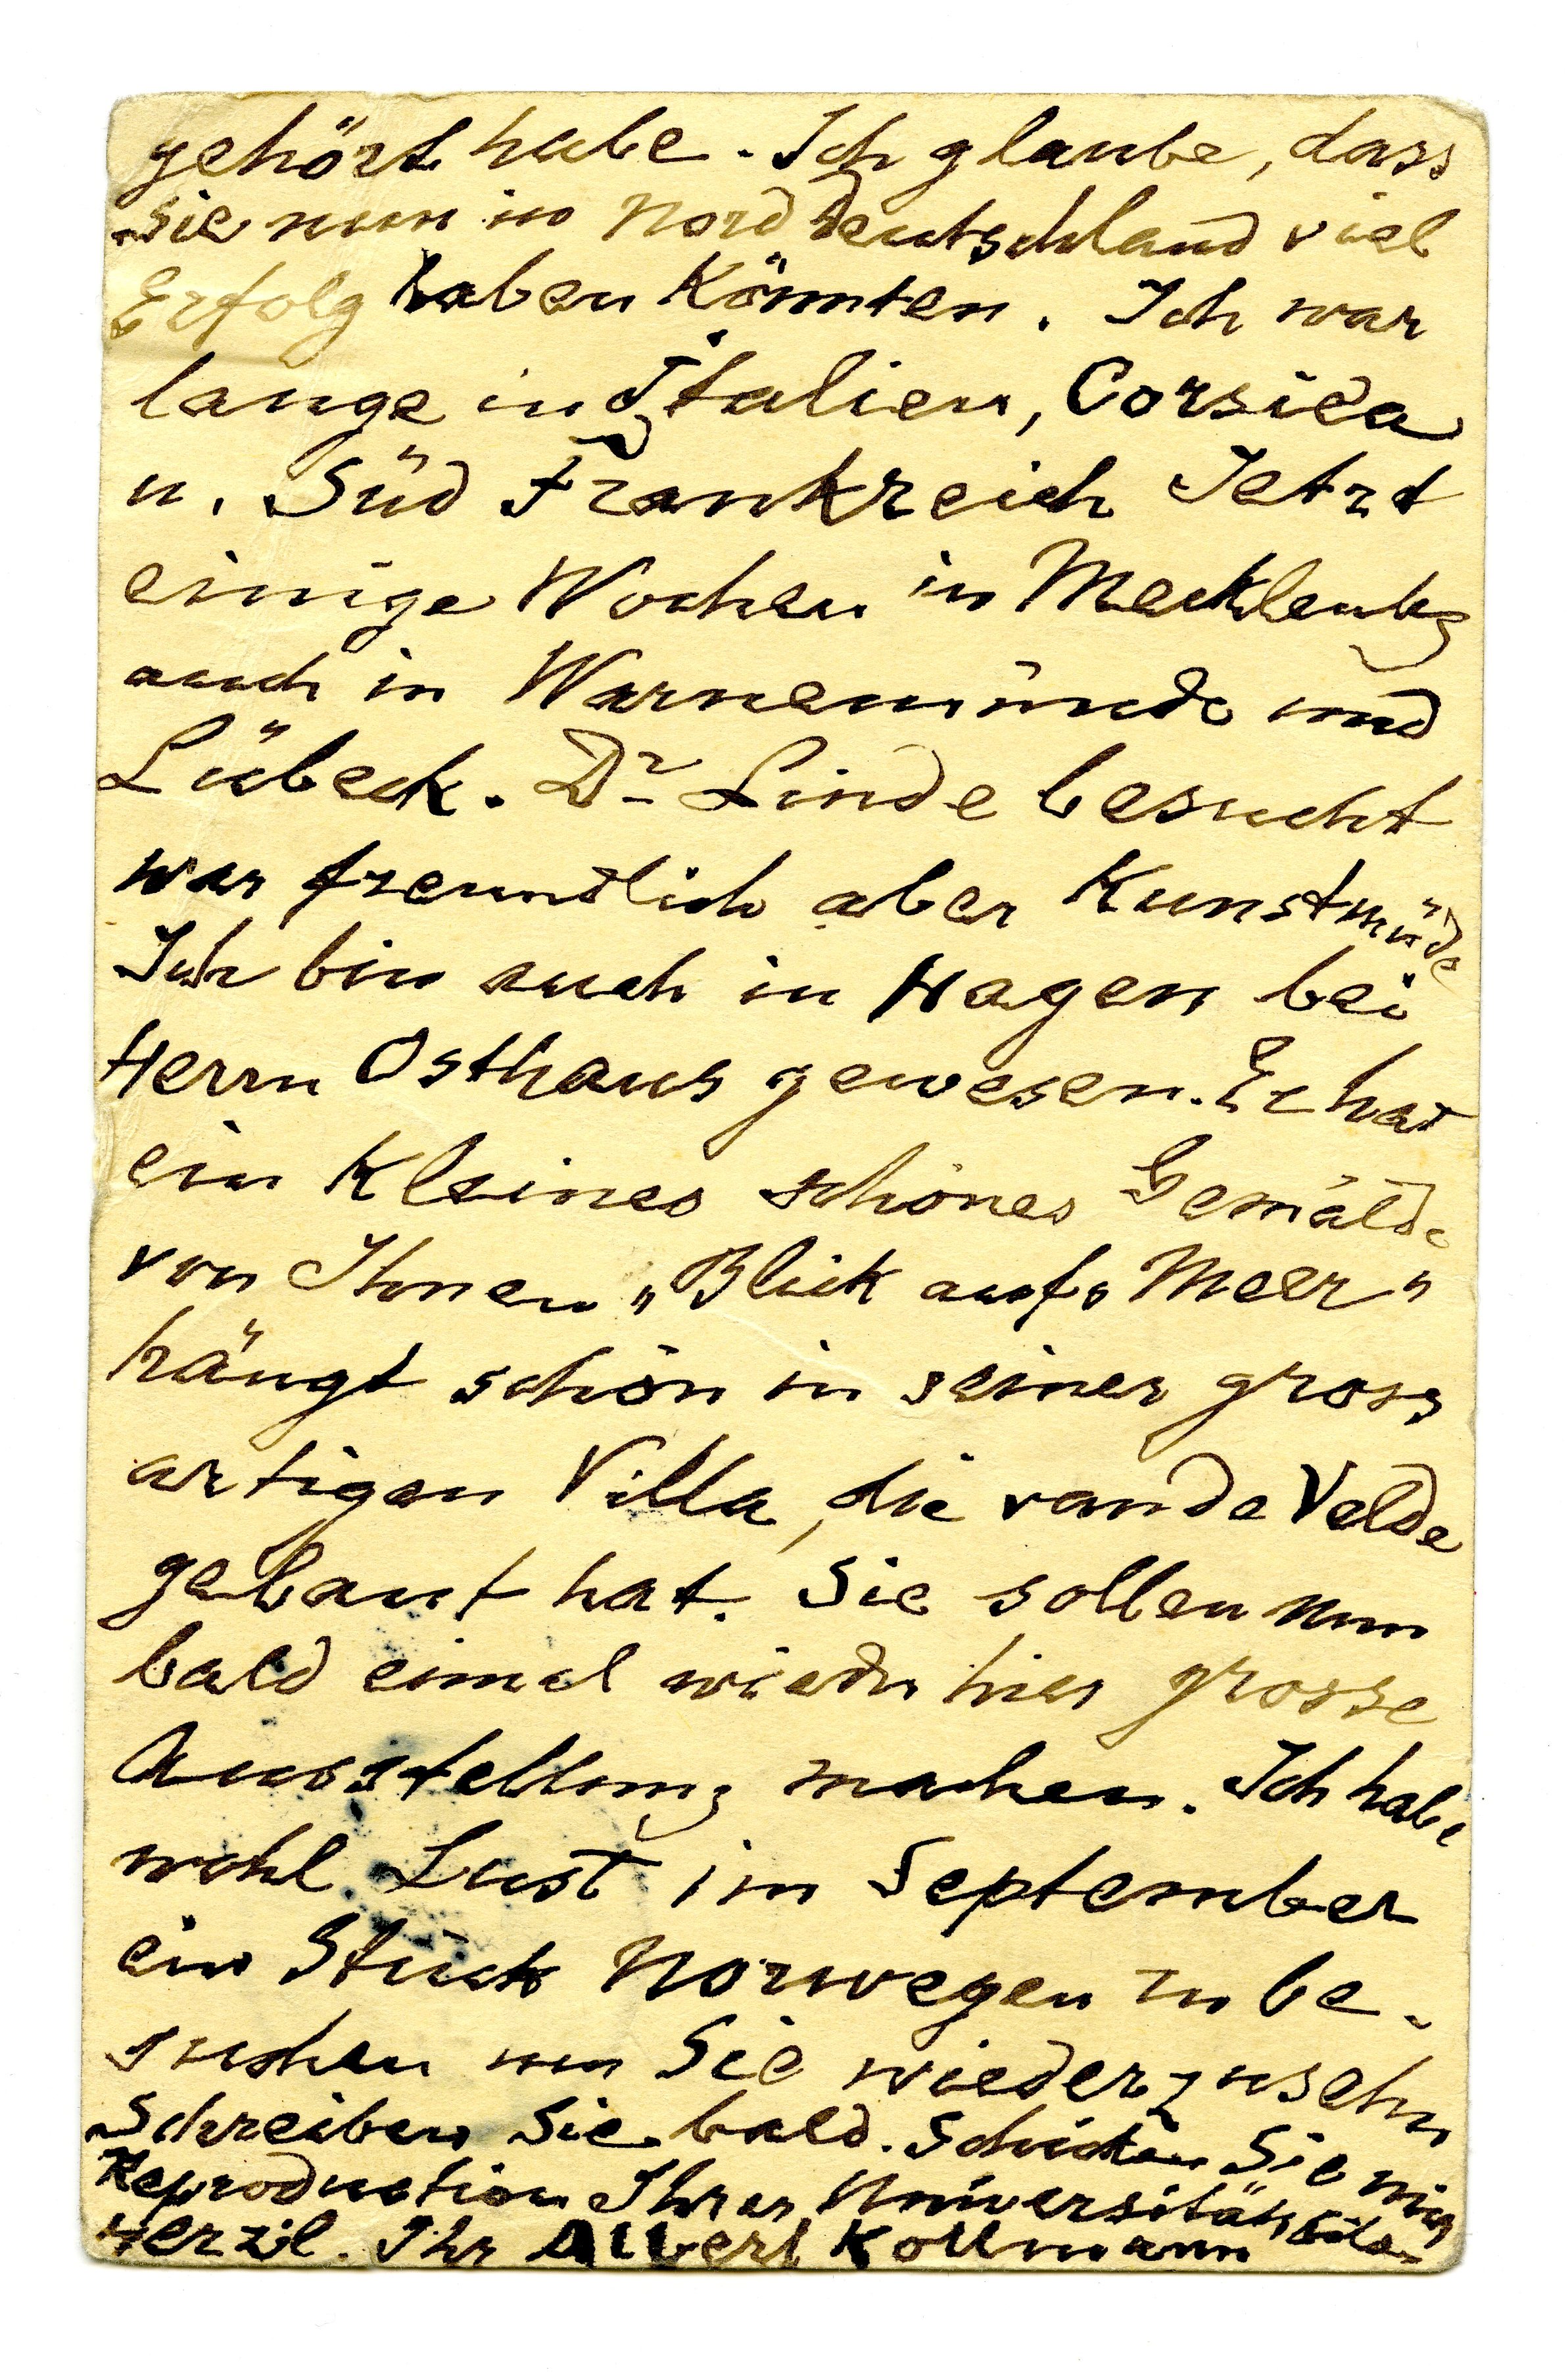 gehört habe. Ich glaube, dass
Sie nun in Nord Deutschland viel
Erfolg haben könnten. Ich war
lange in Italien, Corsica
u. Süd Frankreich Jetzt
einige Wochen in Mecklenbg
auch in Warnemünde und
Lübeck. Dr Linde besucht
war freundlich aber Kunstmüde
Ich bin auch in Hagen bei
Herrn Osthaus gewesen. Er hat
ein kleines schönes Gemälde
von Ihnen „Blick aufs Meer"
hängt schön in seiner gross
artigen Villa, die van de Velde
gebaut hat. Sie sollen nun
bald eimal wieder hier grosse
Ausstellung machen. Ich habe
wohl Lust im September
ein Stück Norwegen zu be-
suchen um Sie wiederzusehn
Schreiben Sie bald. Schicken Sie mir
Reproduction Ihrer Universitäts
Herzl. Ihr Albert Kollmann